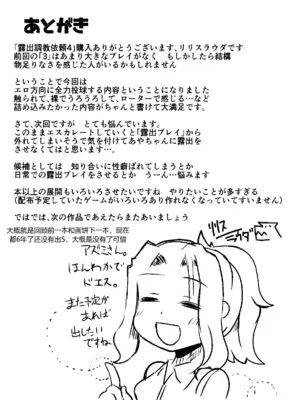 あとがき
「露出調教依頼4」購入ありがとうございます、リリスラウダです
前回の「3」はあまり大きなプレイがなく もしかしたら結構
物足りなさを感じた人がいるかもしれません
ということで今回は
エロ方向に全力投球する内容ということになりました
触られて、裸でうろうろして、ローターで感じる…など
試みたかった内容がちゃんと書けて大満足です。
さて、次回ですが とても悩んでいます。
このままエスカレートしていくと「露出プレイ」から
外れてしまいそうで気を付けてあやちゃんに露出を
させなくてはと思いますが…。
候補としては 知り合いに性癖ばれてしまうとか
日常での露出プレイをさせるとか うーん…悩みます
本以上の展開もいろいろさせたいですね やりたいことが多すぎる
(配布予定していたゲームがいろいろあり作れなくなっていてすいません)
ではでは、次の作品であえたらまたあいましょう
大概就是回顾前一本和画饼下一本，现在
都6年了还没有出5，大概是没有了可惜
リリス
ラウダ
アズミさん。
ほんわかで
ドエス。
また予定が
あれば
出したい
ですね。